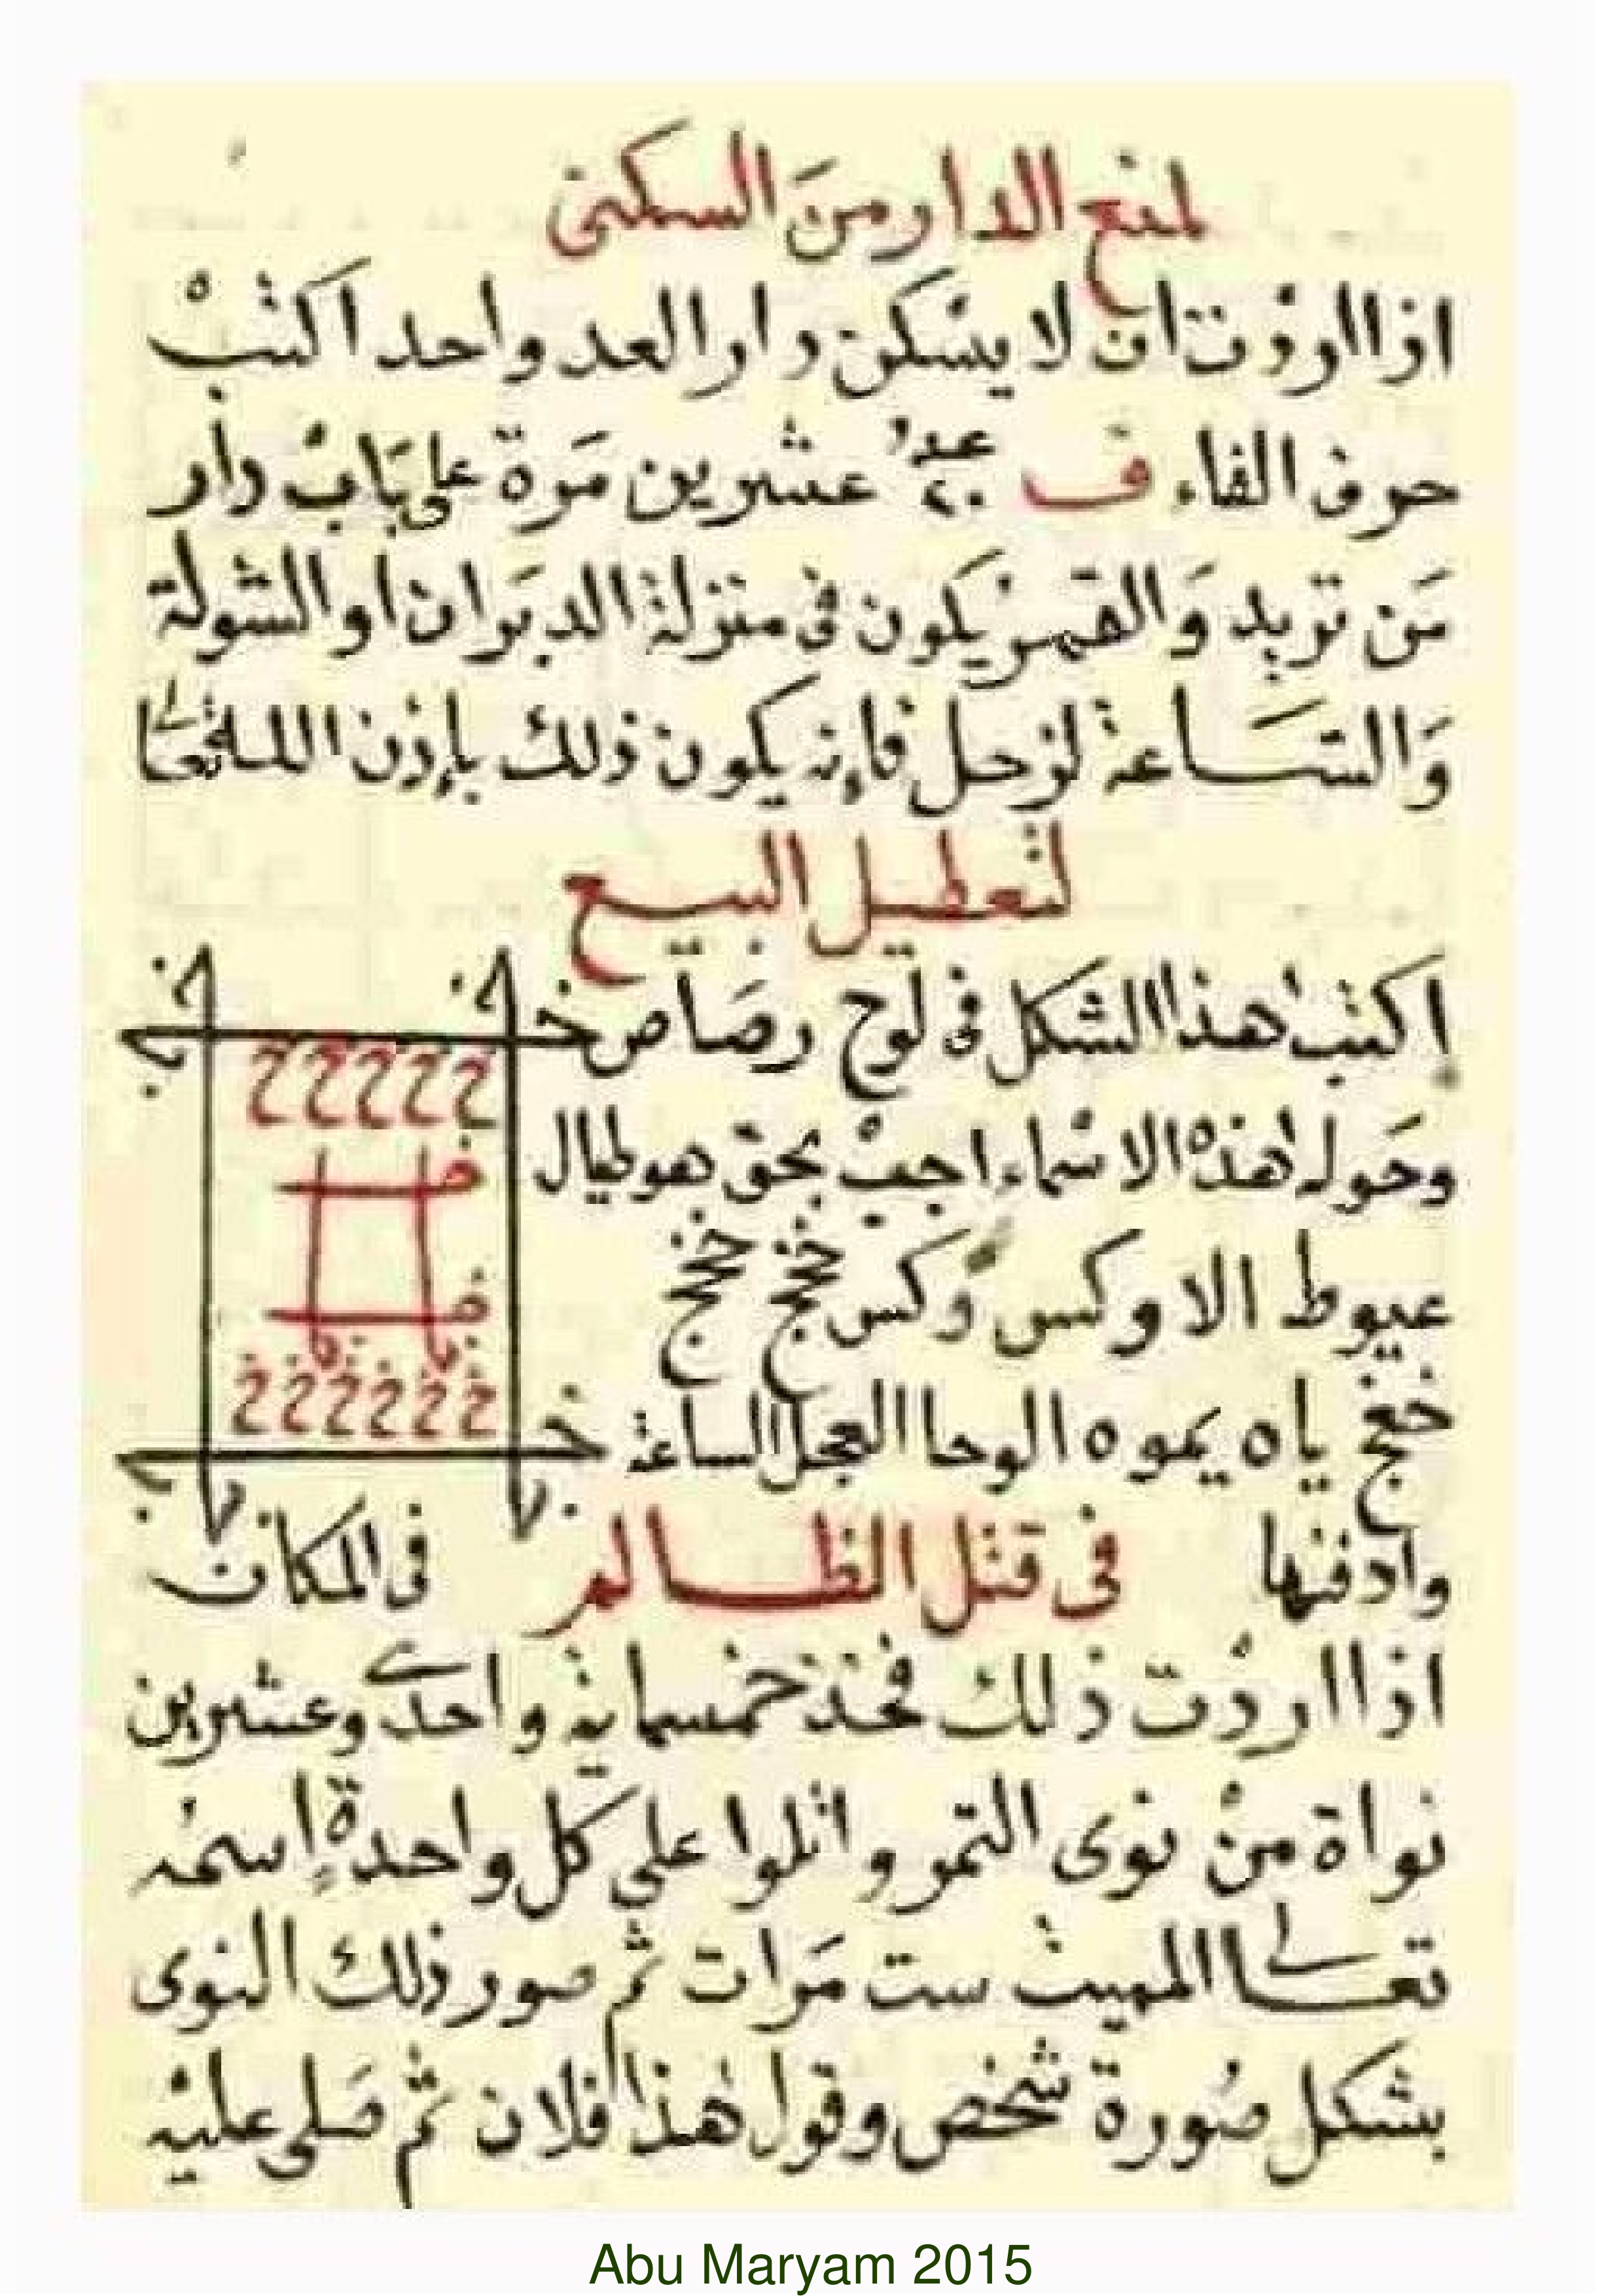 لمنع الدار من السكنى
اذا اردت ان لا يسكن دار العد واحد اكتب
حرف الفاء ف عدد ٢٠ عشرين مَرة على بَابْ دار
مَن تريد وَالقمر يَكون فى منزلة الدبَران او الشولة
وَالسَاعة لزحل فإنه يكون ذلك بإذن الله تعالى
لتعطيل البيع
إكتب هذا الشكل فى لوح رصَاص
وحَوله هٰذه الاسْماء اجبْ بحق هوطيال
عيوط الا وكس وَكس خخج خخج
خخج ياه يموه الوحا العجل الساعة
وادفنها فى المكان
فى قتل الظالم
اذا اردْت ذلك فخذ خمسماية واحدى وعشرين
نواة منْ نوى التمر واتلوا على كل واحدة إسمه
تعالى المميت ست مَرات ثم صور ذلك النوى
بشكل صُورة شخص وقول هٰذا فلان ثم صَلى عليْه
خ
خ
ح ح ح ح ح
خ خ خ خ خ خ
Abu Maryam 2015